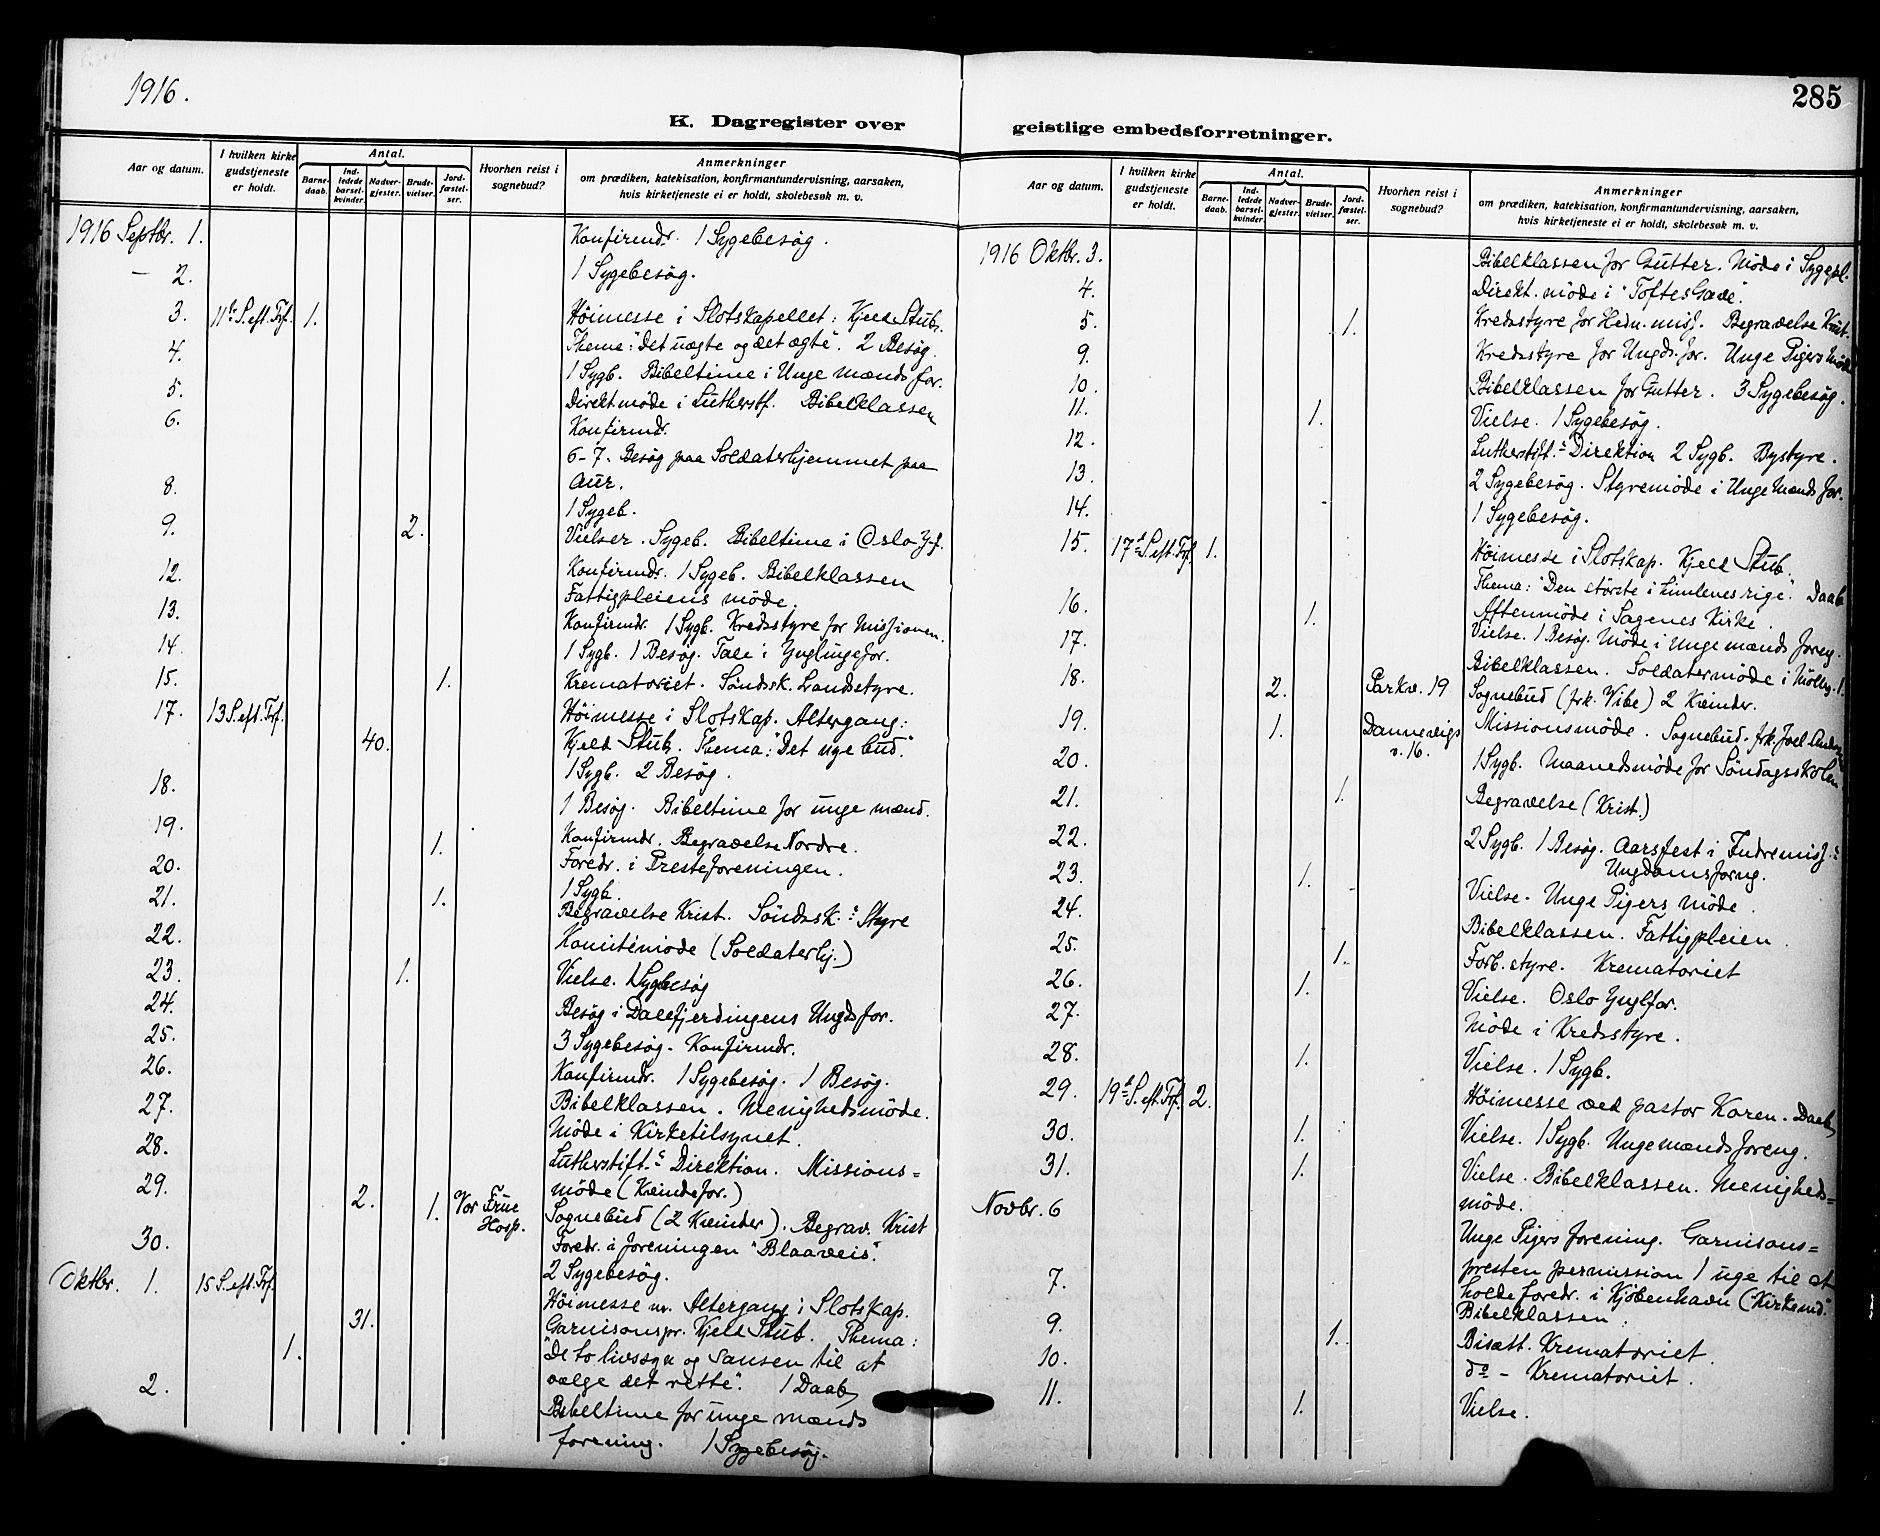 1916.
K. Dagregister over
Aar og datum.
I hvilken kirke gudstjeneste er holdt.
Antal.
Barne-daab.
Ind-ledede barsel-kvinder.
Nadver-gjester.
Brude-vielser.
Jord-fæstel-ser.
Hvorhen reist i sognebud?
Anmerkninger
om prædiken, katekisation, konfirmantundervisning, aarsaken,
hvis kirketjeneste ei er holdt, skolebesøk m. v.
1916 Septbr. 1. Konfirmdr. 1 Sygebesøg.
— 2. 1 Sygebesøg.
3. 11te S. eft. Trf. 1. Höimesse i Slotskapellet: Kjeld Stub.
Thema: "Det uægte og det ægte". 2 Besøg.
4. 1 Sygb. Bibeltime i Unge Mænds for.
5. Direkt. møde i Lutherstf. Bibelklassen
6. Konfirmdr.
6-7. Besøg paa Soldaterhjemmet paa
Aur.
8. 1 Sygeb.
9. 2. Vielser. Sygeb. Bibeltime i Oslo Y-f.
12. Konfirmdr. 1 Sygeb. Bibelklassen
Fattigpleiens møde.
13. Konfirmdr. 1 Sygb. Kredsstyre for Missionen.
14. 1 Sygb. 1 Besøg. Tale i Ynglingefor.
15. 1. Krematoriet. Søndssk. Landsstyre.
17. 13 S. eft. Trf. Höimesse i Slotskap. Altergang:
40. Kjeld Stub. Thema: "Det nye bud".
1 Sygb. 2 Besøg.
18. 1 Besøg. Bibeltime for unge mænd.
19. 1. Konfirmdr. Begravelse Nordre.
20. Foredr. i Presteforeningen.
21. 1. 1 Sygb.
Begravelse Krist. Søndssk.s Styre
22. Komitémøde (Soldaterhj.)
23. 1. Vielse. 1 Sygebesøg
24. Besøg i Dalefjerdingens Ungdsfor.
25. 3 Sygebesøg - Konfirmdr.
26. Konfirmdr. 1 Sygebesøg. 1 Besøg.
27. Bibelklassen. Menighedsmøde.
28. Møde i Kirketilsynet.
Lutherstift.s Direktion. Missions=
29. møde (Kvindefor.)
2. 1. Vor Frue Hosp. Sognebud (2 Kvinder). Begrav. Krist
30. Foredr. i foreningen "Blaaveis".
2 Sygebesøg.
Oktbr. 1. 15 S. eft. Trf. Höimesse m. Altergang i Slotskap.
31. Garnisonspr. Kjeld Stub. Thema:
1. "De to livssyn og sansen til at
vælge det rette". 1 Daab
2. Bibeltime for unge mænds
forening. 1 Sygebesøg.
285
geistlige embedsforretninger.
Aar og datum.
I hvilken kirke gudstjeneste er holdt.
Antal.
Barne-daab.
Ind-ledede barsel-kvinder.
Nadver-gjester.
Brude-vielser.
Jord-fæstel-ser.
Hvorhen reist i sognebud?
Anmerkninger
om prædiken, katekisation, konfirmantundervisning, aarsaken,
hvis kirketjeneste ei er holdt, skolebesøk m. v.
1916 Oktbr. 3. Bibelklassen for Gutter. Møde i Sygepl.
4. Direkt. møde i "Toftes Gave".
5. 1. Kredsstyre for Hedn. miss. Begravelse Krist.
9. Kredsstyre for Ungds. for. Unge Pigers Møde
10. Bibelklassen for Gutter. 3 Sygebesøg.
11. 1. Vielse. 1 Sygebesøg.
12. Lutherstift.s Direktion 2 Sygb. Bystyre.
13. 2 Sygebesøg. Styremøde i Unge Mænds for.
14. 1 Sygebesøg.
15. 17de S. eft. Trf. 1. Höimesse i Slotskap. Kjeld Stub.
Thema: "Den største i himlenes rige". Daab
Aftenmøde i Sagenes Kirke.
16. 1. Vielse. 1 Besøg. Møde i Unge mænds foreng.
17. Bibelklassen. Soldatermøde i Møllg. 1.
18. 2. Parkv. 19 Sognebud (frk. Vibe) 2 Kvinder.
19. 1. Dannevigs v. 16. Missionsmøde. Sognebud. frk. Joel
20. 1 Sygb. Maanedsmøde for Søndagsskolen
21. 1. Begravelse (Krist.)
22. 2 Sygb. 1 Besøg. Aarsfest i Indremiss.s
Ungdomsforng.
23. 1. Vielse. Unge Pigers møde.
24. Bibelklassen. Fattigpleien.
25. 1. Forb. styre. Krematoriet
26. 1. Vielse. Oslo Ynglfor.
27. Møde i Kredsstyre.
28. 1. Vielse. 1 Sygb.
29. 19de S. eft. Trf. 2. Höimesse ved pastor Koren. Daab
30. 1. Vielse. 1 Sygb. Unge mænds foreng.
31. 1. Vielse. Bibelklassen. Menigheds=
møde.
Novbr. 6 Unge Pigers forening. Garnisons=
presten permission 1 uge til at
7. holde foredr. i Kjøbenhavn ("Kirkenid."
Bibelklassen.
9. 1. Bisætt. Krematoriet.
10. do - Krematoriet.
11. 1. Vielse.